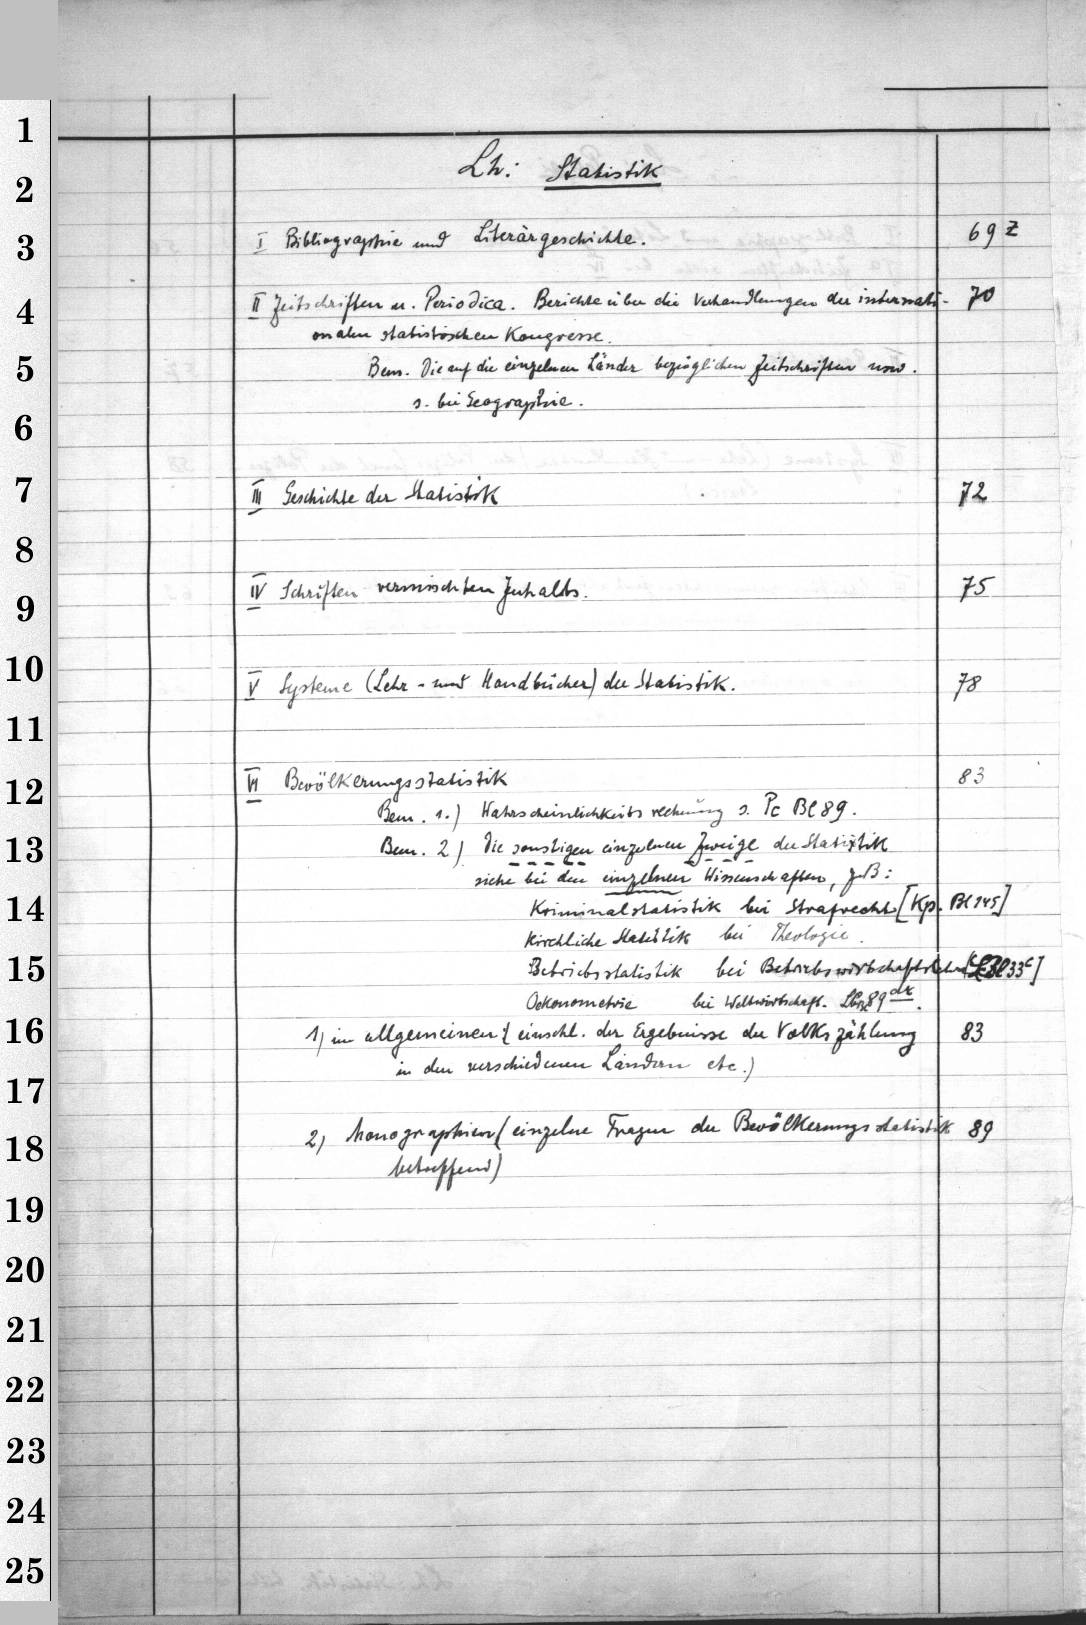 Lh: Statistik
I Bibliographie und Literärgeschichte. 69 z
II Zeitschriften u. Periodica. Berichte über die Verhandlungen der internati- 70
onalen statistischen Kongresse.
Bem. Die auf die einzelnen Länder bezüglichen Zeitschriften usw.
s. bei Geographie.
III Geschichte der Statistik 72
IV Schriften vermischten Inhalts. 75
V Systeme (Lehr- und Handbücher) der Statistik. 78
VI Bevölkerungsstatistik 83
Bem. 1.) Wahrscheinlichkeitsrechnung s. Pc Bl 89.
Bem. 2) Die sonstigen einzelnen Zweige der Statistik
siehe bei den einzelnen Wissenschaften, z.B:
Kriminalstatistik bei Strafrecht [Kp. Bl 145]
Kirchliche Statistik bei Theologie.
Betriebsstatistik bei Betriebswirtschaftslehre 33c]
Oekonometrie bei Weltwirtschaft. 89
1) im allgemeinen (einschl. der Ergebnisse der Volkszählung 83
in den verschiedenen Ländern etc.)
2) Monographien (einzelne Fragen der Bevölkerungsstatistik 89
betreffend)
1
2
3
4
5
6
7
8
9
10
11
12
13
14
15
16
17
18
19
20
21
22
23
24
25